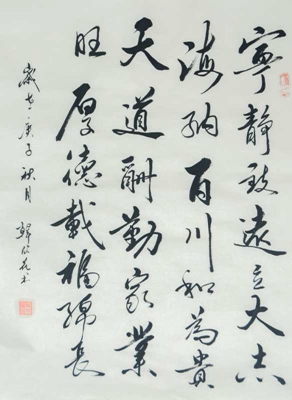 寧静致遠立大志
海纳百川和為貴
天道酬勤家業
旺厚德載福綿長
歲在庚子秋月